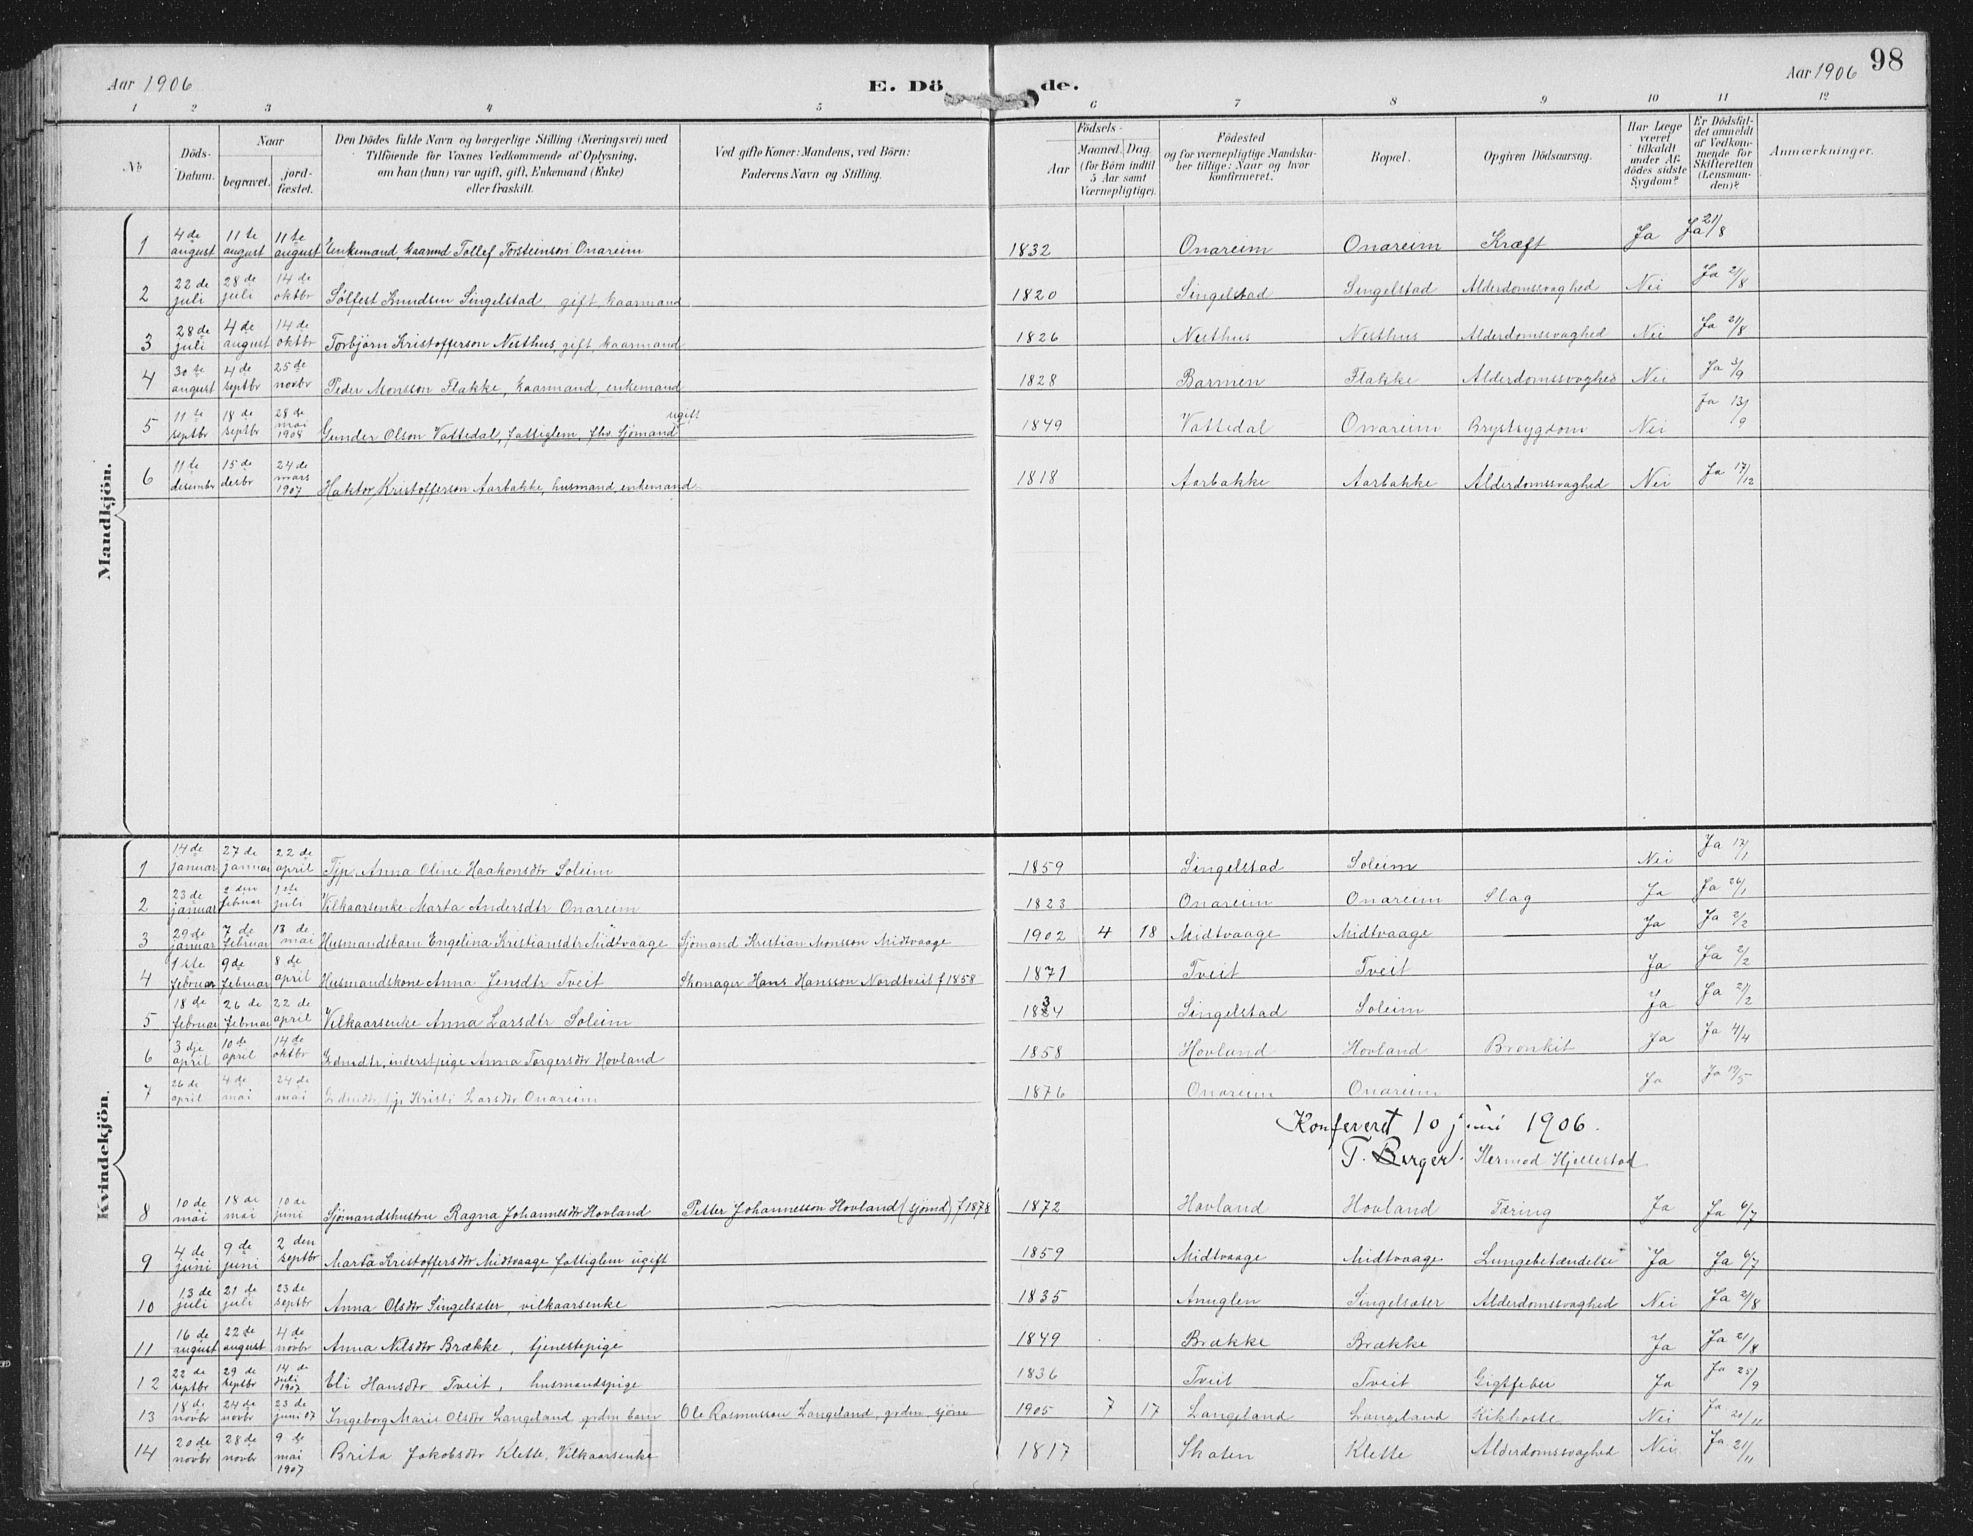 Aar 1906
E. Dö de.
Aar 1906
98
1 2 3 4 5 6 7 8 9 10 11 12
№
Döds-Datum.
Naar
begravet.
jord-fæstet.
Den Dödes fulde Navn og borgerlige Stilling (Næringsvei) med Tilföiende for Voxnes Vedkommende af Oplysning, om han (hun) var ugift, gift, Enkemand (Enke) eller fraskilt.
Ved gifte Koner: Mandens, ved Börn: Faderens Navn og Stilling.
Födsels-
Aar
Maaned. Dag.
(for Börn indtil 5 Aar samt Værnepligtige).
Födested og for værnepligtige Mandskaber tillige: Naar og hvor konfirmeret.
Bopæl.
Opgiven Dödsaarsag.
Har Læge været tilkaldt under Afdödes sidste Sygdom?
Er Dödsfaldet anmeldt af Vedkommende for Skifteretten (Lensmanden)?
Anmærkninger.
Mandkjön.
1 4de august 11te august 11te august Enkemand, kaarmd Tollef Torsteinson Onareim 1832 Onareim Onareim Kræft Ja Ja 21/8
2 22de juli 28de juli 14de oktbr Sölfest Knudsen Singelstad, gift, kaarmand 1820 Singelstad Singelstad Alderdomssvaghed Nei Ja 21/8
3 28de juli 4de august 14de oktbr Torbjörn Kristofferson Nesthus, gift, kaarmand 1826 Nesthus Nesthus Alderdomssvaghed Nei Ja 21/8
4 30te august 4de septbr 25de novbr Peder Monsson Flakke, kaarmand, enkemand 1828 Barmen Flakke Alderdomssvaghed Nei Ja 3/9
5 11te septbr 18de septbr 28de mai 1908 Gunder Olson Vattedal, fattiglem, fhv. sjömand ugift 1849 Vattedal Onareim Brystsygdom Nei Ja 13/9
6 11te desembr 15de desbr 24de mars 1907 Haktor Kristofferson Aarbakke, husmand, enkemand 1818 Aarbakke Aarbakke Alderdomssvaghed Nei Ja 17/12
Kvindekjön.
1 14de januar 27de januar 22de april Tjp. Anna Oline Haakonsdtr Soleim 1859 Singelstad Soleim Nei Ja 17/1
2 23de januar 2den februar 1ste juli Vilkaarsenke Marta Andersdtr Onareim 1823 Onareim Onareim Slag Ja Ja 26/1
3 29de januar 7de februar 13de mai Husmandsbarn Engelina Kristiansdtr Midtvaage Sjömand Kristian Monsson Midtvaage 1902 4 18 Midtvaage Midtvaage Ja Ja 2/2
4 1ste februar 9de februar 8de april Husmandskone Anna Jensdtr Tveit Skomager Hans Hansson Nordtveit f 1858 1871 Tveit Tveit Ja Ja 2/2
5 18de februar 26de februar 22de april Vilkaarsenke Anna Larsdtr Soleim 1834 Singelstad Soleim Ja Ja 21/2
6 3dje april 10de april 14de oktbr Grdmdtr, inderstpige Anna Torgersdtr Hovland 1858 Hovland Hovland Bronkit Ja Ja 4/4
7 26de april 4de mai 24de mai Grdmdtr, tjp Kristi Larsdtr Onareim 1876 Onareim Onareim Ja Ja 19/5
Konfereret 10 juni 1906.
T. Berger. Hermod Hjellestad
8 10de mai 18de mai 10de juni Sjömandshustru Ragna Johannesdtr Hovland Petter Johannesson Hovland (sjömd) f 1878 1872 Hovland Hovland Tæring Ja Ja 6/7
9 4de juni 9de juni 2den septbr Marta Kristoffersdtr Midtvaage fattiglem ugift 1859 Midtvaage Midtvaage Lungebetændelse Ja Ja 6/7
10 13de juli 21de juli 23de septbr Anna Olsdtr Singelsæter, vilkaarsenke 1835 Anuglen Singelsæter Alderdomssvaghed Nei Ja 21/8
11 16de august 22de august 4de novbr Anna Nilsdtr Brække, tjenestepige 1849 Brække Brække Ja Ja 21/8
12 22de septbr 29de septbr 14de juli 1907 Eli Hansdtr Tveit, husmandspige 1836 Tveit Tveit Gigtfeber Ja Ja 25/9
13 18de novbr 24de novbr 23de juni 07 Ingeborg Marie Olsdtr Langeland, grdm. barn Ole Rasmusson Langeland, grdm. sjöm 1905 7 17 Langeland Langeland Kikhoste Nei Ja 20/11
14 20de novbr 28de novbr 9de mai 1907 Brita Jakobsdtr Klette, Vilkaarsenke 1817 Skaten Klette Alderdomssvaghed Nei Ja 21/11